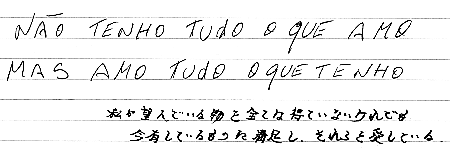 NÃO TENHO TUDO O QUE AMO
MAS AMO TUDO O QUE TENHO
私が望んでいる物を全ては得ていないけれども
今有しているものに満足し、それらを愛している